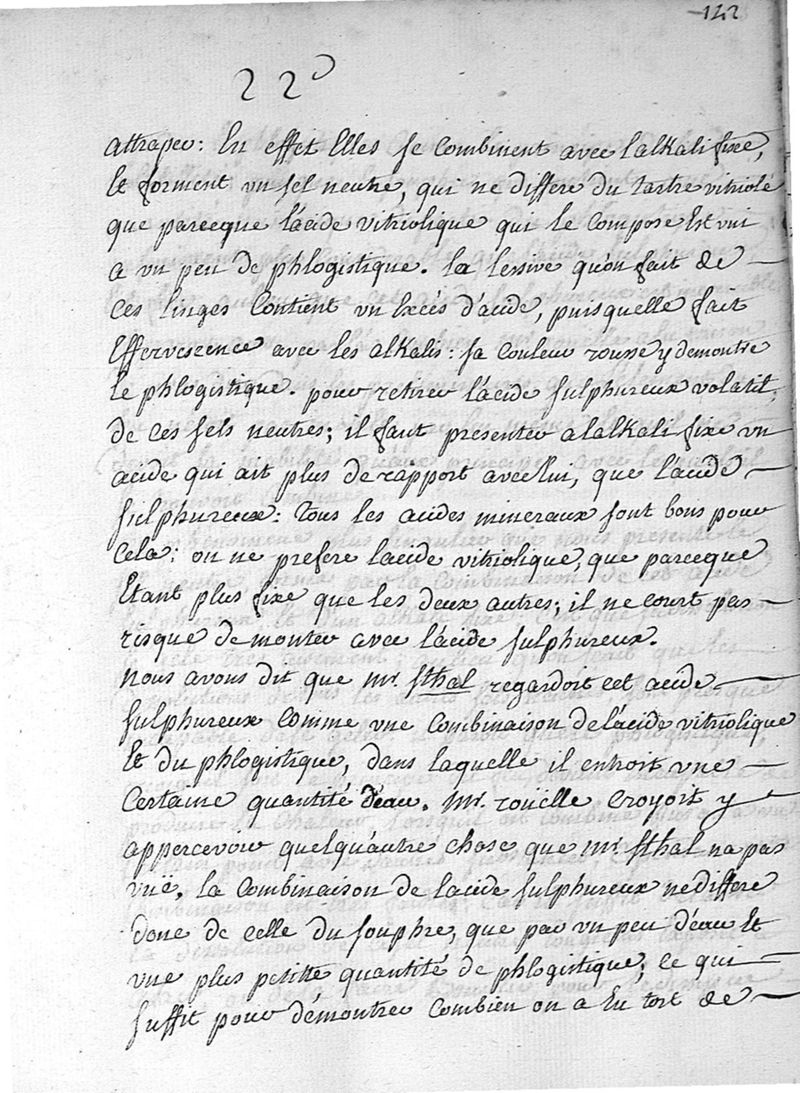 142
220
attraper: En effet Elles se Combinent avec l'alkali fixe,
Et forment un sel neutre, qui ne differe du tartre vitriolé
que parceque l'ácide vitriolique qui le Compose Est uni
a un peu de phlogistique. la lessive qu'on fait de
Ces linges Contient un Excés d'acide, puisquelle fait
Effervescence avec les alkalis: sa Couleur rousse y demontre
le phlogistique. pour retirer l'ácide sulphureux volatil,
de Ces sels neutres; il faut presenter a l'alkali fixe un
acide qui ait plus de rapport avec lui, que l'ácide
sulphureux: tous les acides mineraux sont bons pour
Cela: on ne prefere l'acide vitriolique, que parceque
Etant plus fixe que les deux autres; il ne court pas
risque de monter avec l'ácide sulphureux.
Nous avons dit que mr. Sthal regardoit cet acide
sulphureux Comme une Combinaison de l'ácide vitriolique
Et du phlogistique, dans laquelle il entroit une
Certaine quantité d'eau. Mr. roüelle Croyoit y
appercevoir quelqu'autre chose que mr. Sthal na pas
vuë. la Combinaison de l'acide sulphureux ne differe
donc de celle du souphre, que par un peu d'eau Et
une plus petitte quantité de phlogistique; ce qui
suffit pour démontrer Combien on a Eu tort de